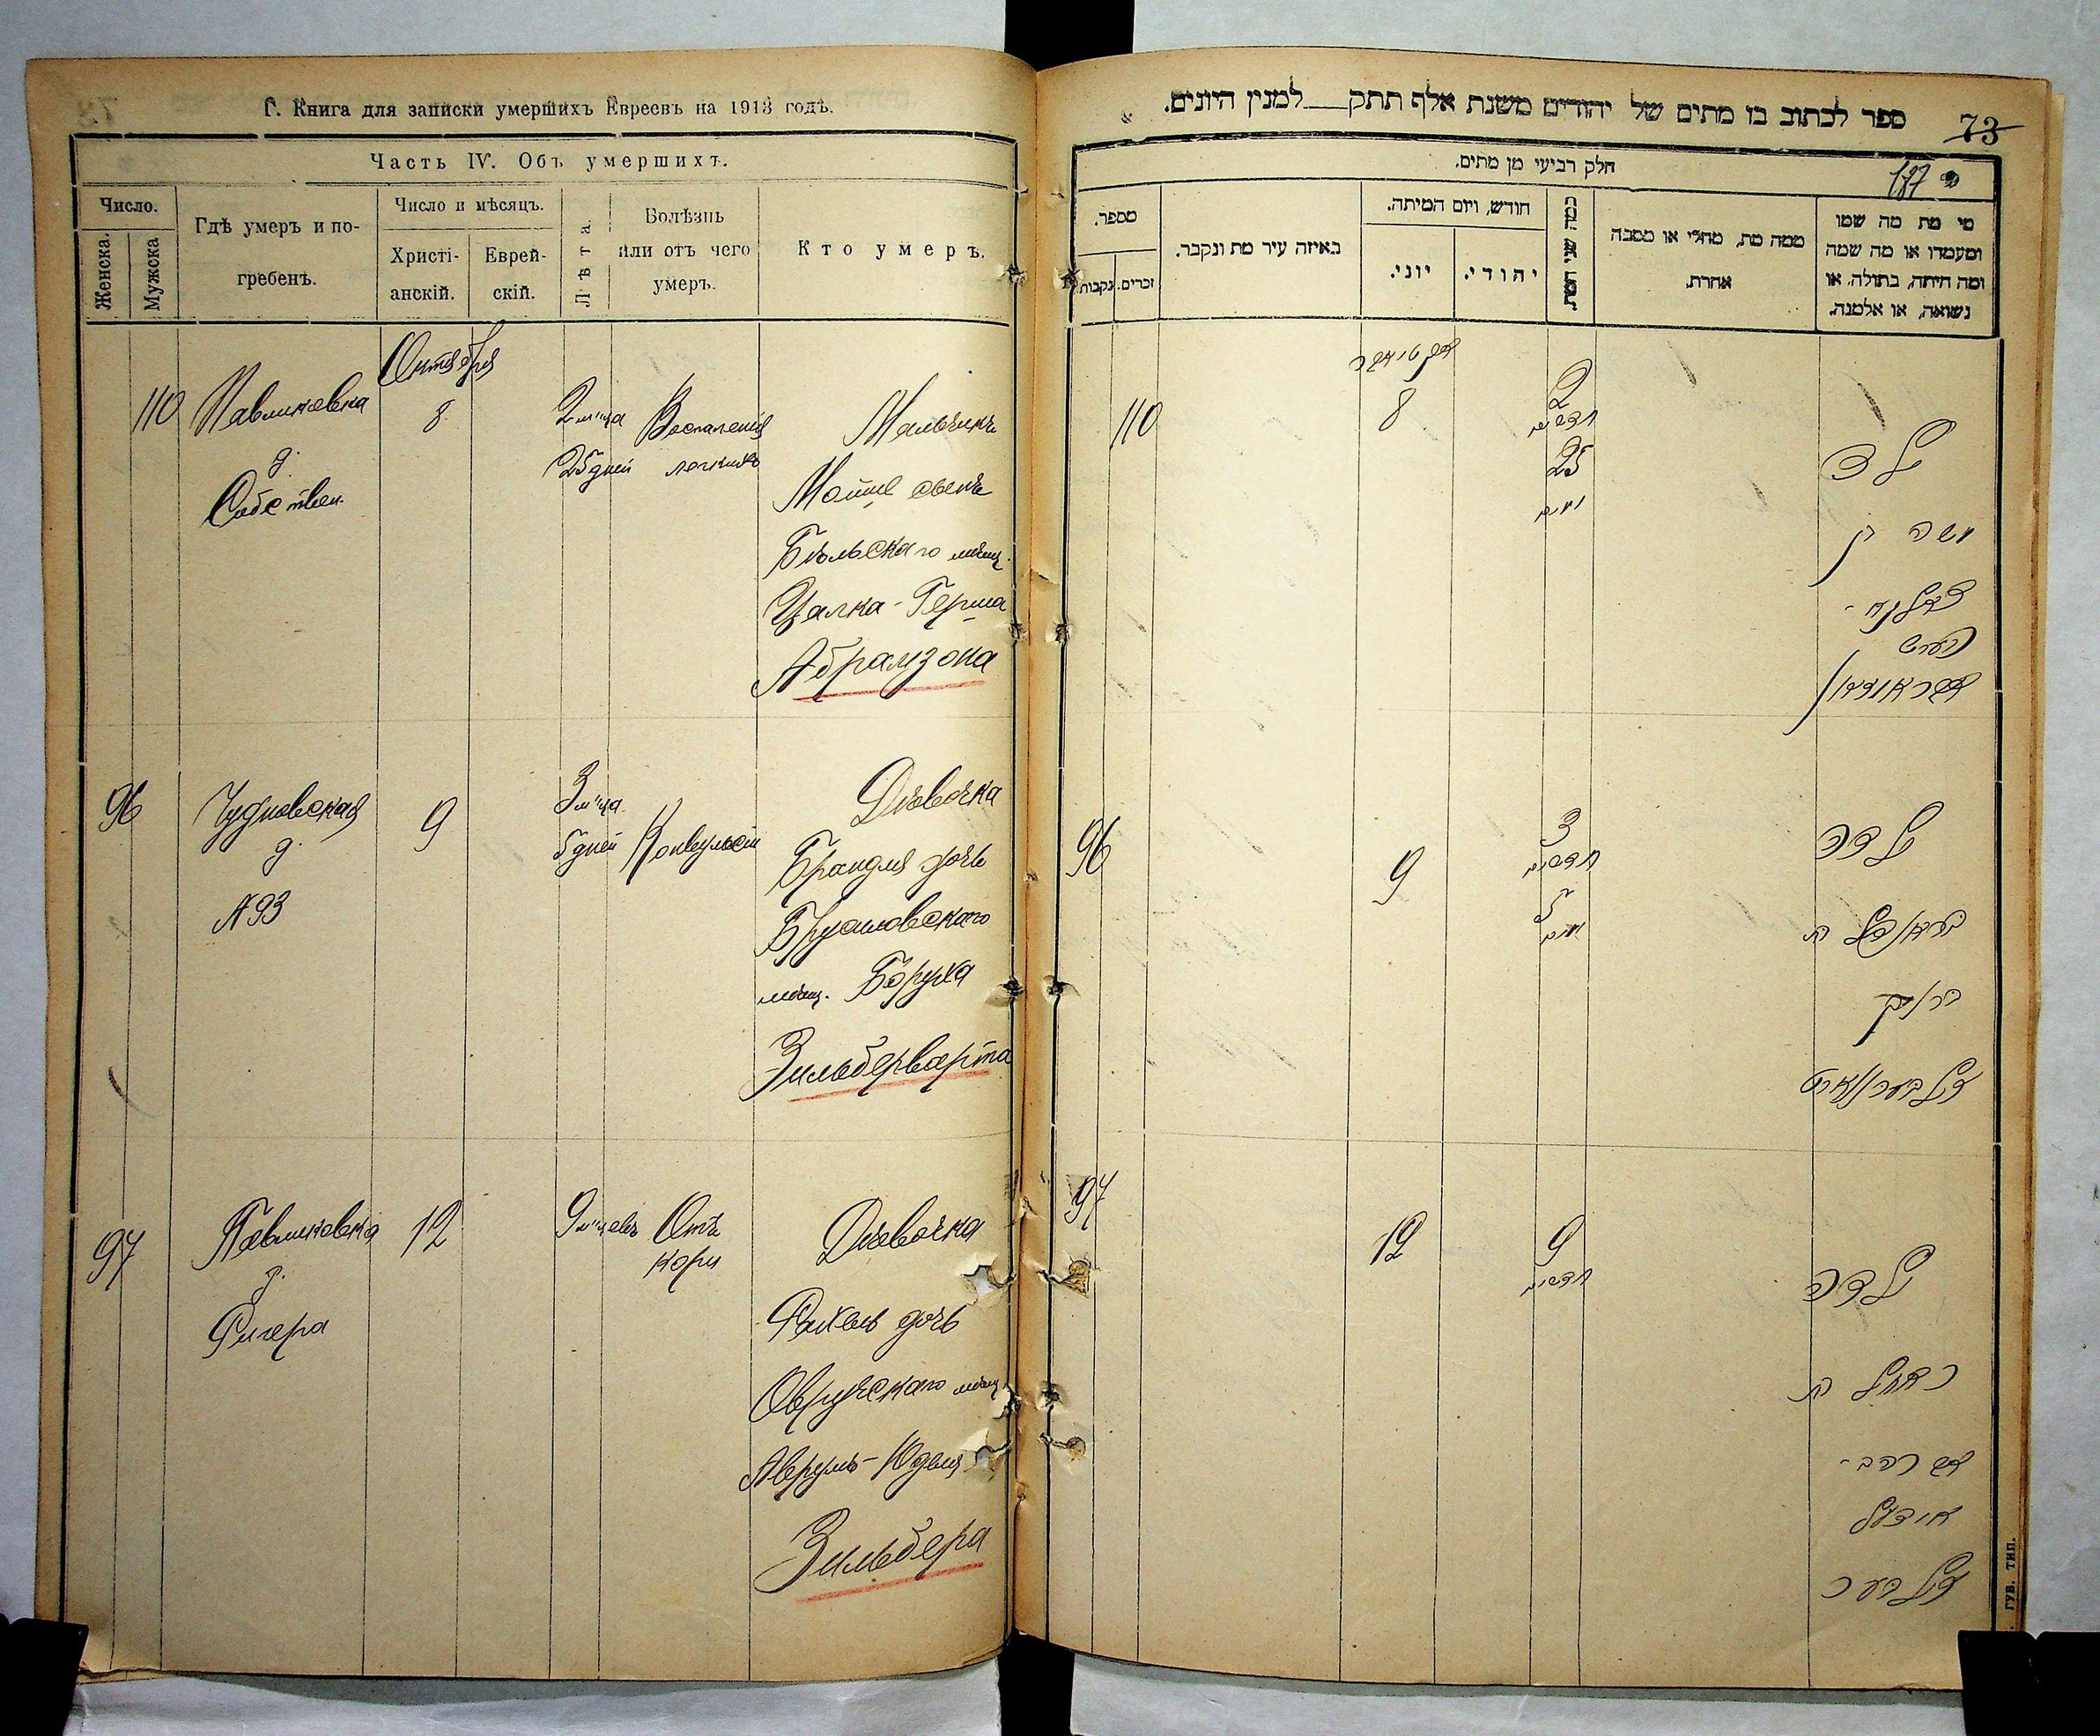 Г. Книга для записки умершихъ Евреевъ на 1913 годъ.
Часть IV. Объ умершихъ.
Число.
Женска.
Мужска
Гдѣ умеръ и по-
гребенъ.
Число и мѣсяцъ.
Христі-
анскій.
Еврей-
скій.
Лѣта.
Болѣзнь
или отъ чего
умеръ.
Кто умеръ.
Октября
110 Павликовка 8 2 м‑ца Воспаленія Мальчикъ
д. 25 дней легкихъ
Собствен.
Мойше сынъ
Бѣльскаго мѣщ.
Цалка-Герша
Абрамзона
96 Чудновская 9 3 м‑ца Дѣвочка
д. 5 дней Конвульсіи
№ 93
Брандля дочь
Брусиловскаго
мѣщ. Боруха
Зильберварта
97 Павликовка 12 9 м‑цевъ Отъ Дѣвочка
д. кори
Ригера
Рахель дочь
Овручскаго мѣщ.
Аврумъ-Юделя
Зильбера
ספר לכתוב בו מתים של יהודים משנת אלף תתק למנין היונים.
73
187
חלק רביעי מן מתים.
מי מת מה שמו
ומעמדו או מה שמה
ומה היתה, בתולה, או
נשואה, או אלמנה.
ממה מת, מחלי או מסבה
אחרת.
כמה שני חייו.
חודש, ויום המיתה.
יהודי.
יוני.
באיזה עיר מת ונקבר.
מספר.
זכרים.
נקבות
אקטיאבר
110 8 2
חדשים
25
ימים
ילד
משה בן
צאלקא-
הערש
אבראמזאן
96 9 3
חדשים
5
ימים
ילדה
בראנדל בת
ברוך
זילבערווארט
97 12 9
חדשים
ילדה
ראחל בת
אברהם-
יודעל
זילבער
ГУБ. ТИП.